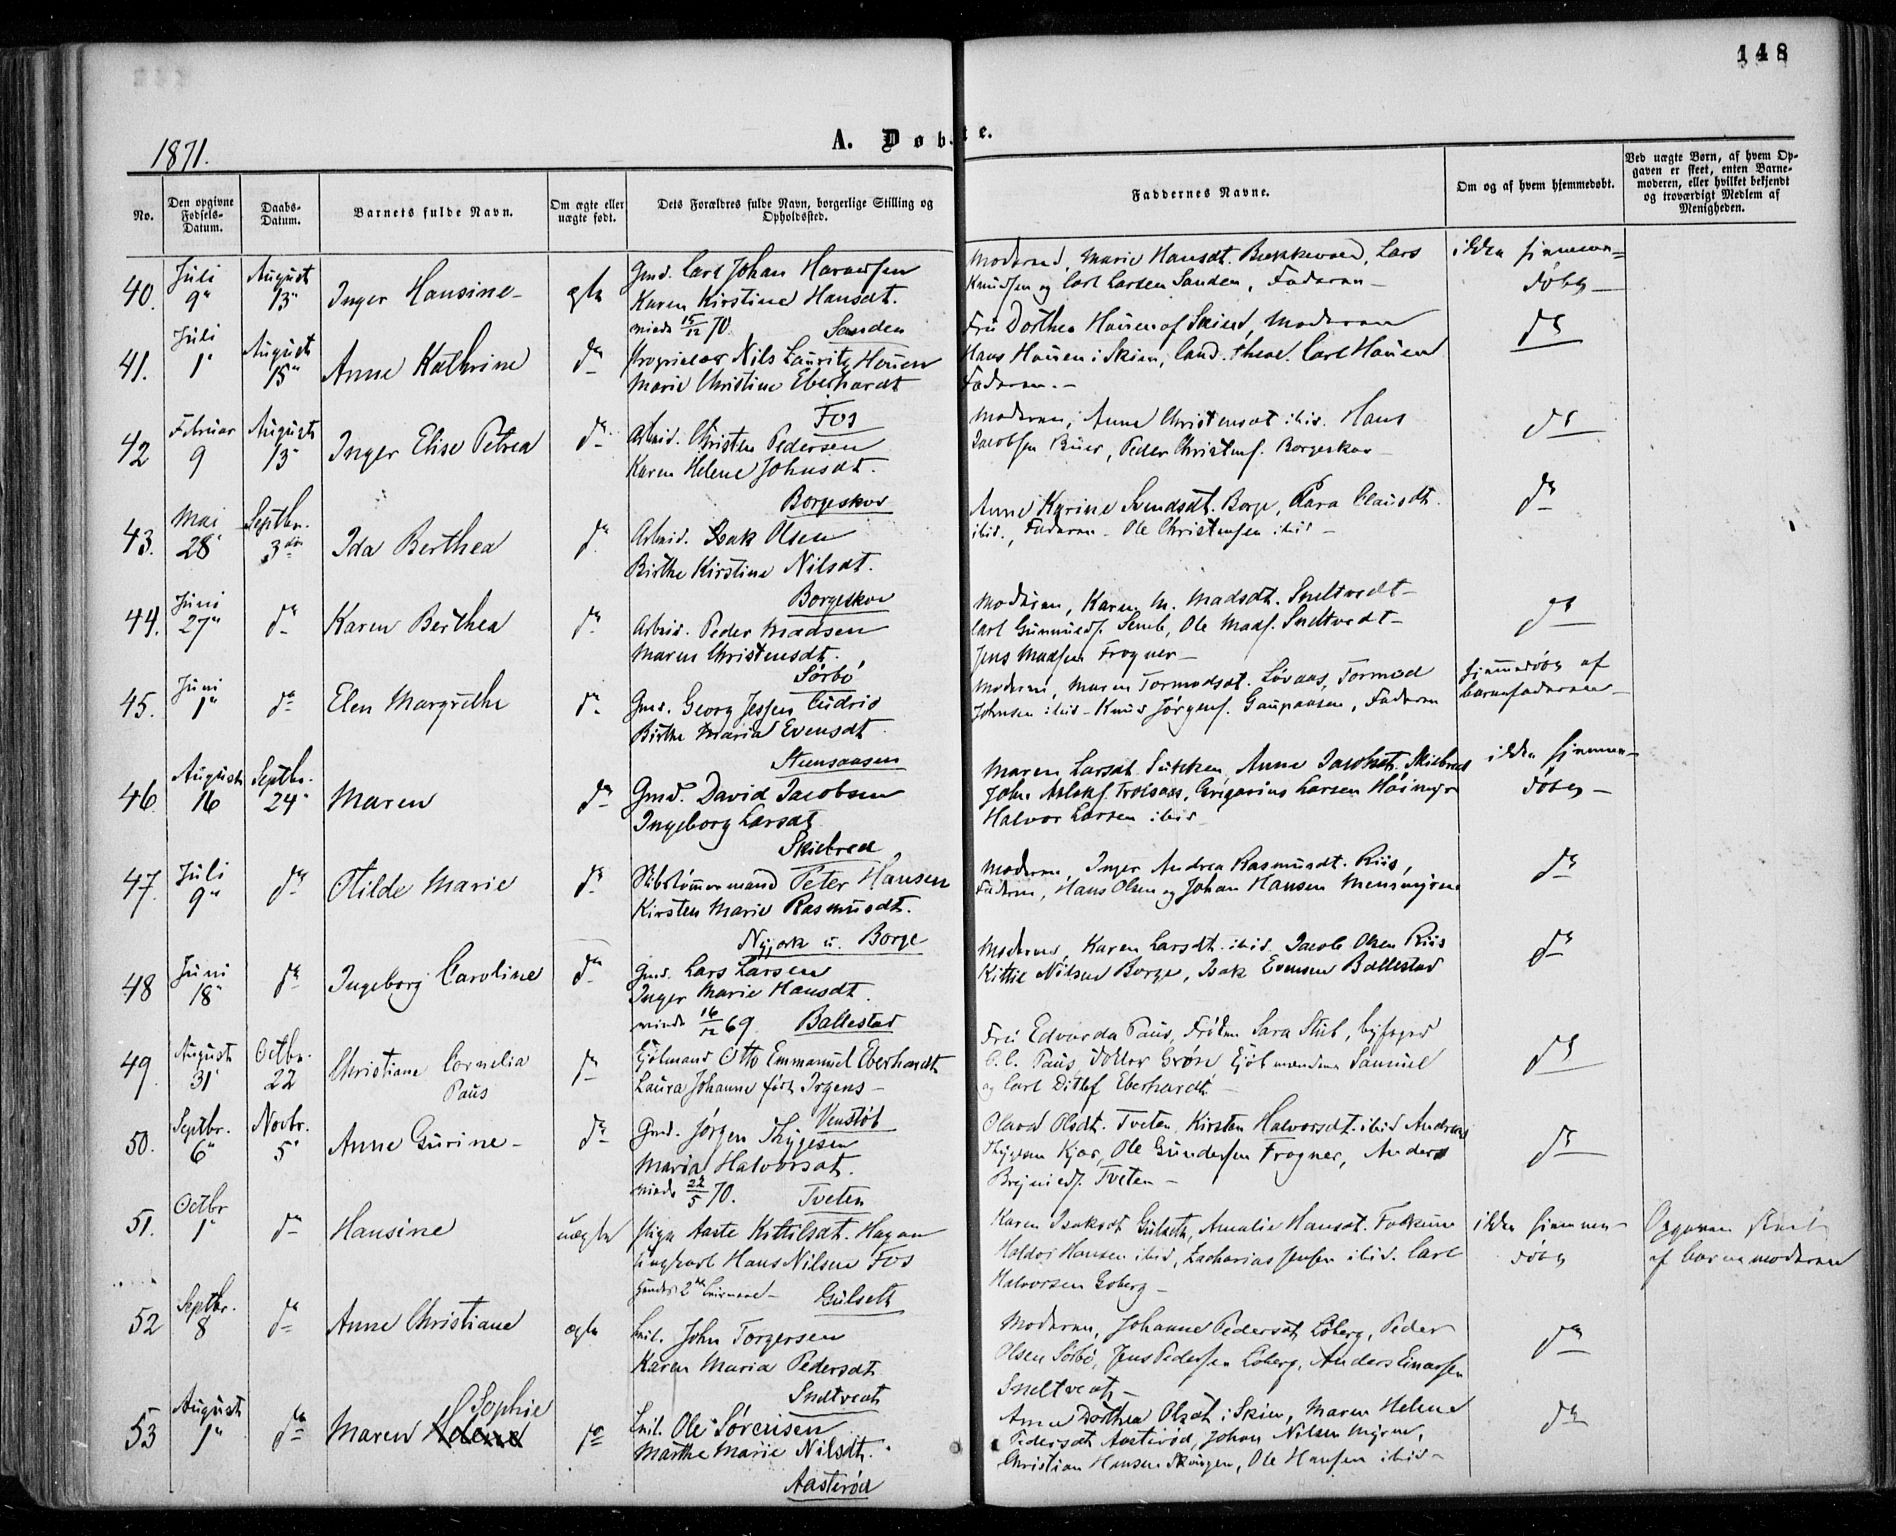 148
1871.
A. Døbte.
No.
Den opgivne Fødsels-Datum.
Daabs-Datum.
Barnets fulde Navn.
Om ægte eller uægte født.
Dets Forældres fulde Navn, borgerlige Stilling og Opholdssted.
Faddernes Navne.
Om og af hvem hjemmedøbt.
Ved uægte Børn, af hvem Opgaven er skeet, enten Barnemoderen, eller hvilket bekjendt og troværdigt Medlem af Menigheden.
40. Juli 9" August 13" Inger Hansine - ægte
Gmd. Carl Johan
Karen Kirstine Hansdt.
15/12 70. Sanden
Moderen, Marie Hansdt. Lars
Knudsen og Carl Larsen Sanden, Faderen -
ikke hjemme=
døbt -
41. Juli 1" August 15" Anne Kathrine do
Proprietær Nils Lauritz Houen
Marie Christine Eberhardt
Fos
Fru Dorthea Houen af Skien, Moderen
Hans Houen i Skien, Cand. theol. Carl Houen
Faderen. -
do
42 Februar 9 August 13" Inger Elise Petrea do
Arbeid. Christen Pedersen
Karen Helene Johnsdt.
Borgeskov
Moderen, Anne Christensdt ibid. Hans
Jacobsen Buer, Peder Christens. Borgeskov -
do
43. Mai 28" Septbr. 3die Ida Berthea do
Arbeid. Isak Olsen
Birthe Kirstine Nilsdt.
Borgeskov
Anne Karine Svendsdt. Borge, Clausdt.
ibid., Faderen - Ole Christensen ibid -
do
44. Juni 27" do Karen Berthea do
Arbeid. Peder Madsen
Maren Christensdt.
Sørbø
Moderen, Karen M. Madsdt. Sneltvedt -
Carl Ole Mads. Sneltvedt -
Jens Madsen Frogner -
do
45. Juni 1" do Elen Margrethe do
Gmd. Georg Jessen
Birthe Maria Evensdt
Steensaasen
Moderen, Maren Tormodsdt. Løvaas, Tormod
Johnsen ibid - Knud Jørgens. Gaupaasen, Faderen
hjemmedøbt af
barnefaderen -
46. August 16 Septbr. 24" Maren do
Gmd. David Jacobsen
Ingeborg Larsdt
Skiebred
Maren Larsdt. Anne Jacobsdt. Skiebred
John Aslaks. Gregorius Larsen
Halvor Larsen ibid
ikke hjemme-
døbt -
47. Juli 9" do Otilde Marie do
Skibstømmermand Peter Hansen
Kirsten Marie Rasmusdt.
u. Borge
Moderen, Inger Andrea Rasmusdt. Riis,
Faderen, Hans Olsen og Johan Hansen
do
48 Juni 18" do Ingeborg Caroline do
Gmd. Lars Larsen
Inger Marie Hansdt.
16/12 69. Ballestad
Moderen, Karen Larsdt. ibid. Jacob Olsen Riis
Kittil Nilsen Borge, Isak Evensen Ballestad
do
49 August 31" Octbr. 22 Christiane Cornelia
Paus do
Kjøbmand Otto Emmanuel Eberhardt
Laura Johanne født Irgens -
Venstøb
Fru Edvarda Paus, Frøken Sara Stub, byfoged
C. C. Paus, Doktor Grøn Kjøbmændene Samuel
og Carl Ditlef Eberhardt -
do
50. Septbr. 6" Novbr. 5" Anne Gurine - do
Gmd. Jørgen Thygesen
Maria Halvorsdt.
22/5 70. Tveten
Olava Olsdt. Tveten, Kirsten Halvorsdt. ibid Andreas
Thygesen Kjær, Ole Gundersen Frogner, Anders
Tveten -
do
51. Octbr 1" do Hansine uægte
Pige Aaste Kittilsdt. Hagen
Ungkarl Hans Nilsen Fos
2det Gulseth
Karen Isaksdt Gulseth, Amalie Hansdt.
Haldor Hansen ibid, Zacharias Jensen ibid. Carl
Halvorsen Goberg -
ikke hjemme-
døbt
Opgaven skeet
af barnemoderen
52 Septbr. 8 do Anne Christiane ægte
John Torgersen
Karen Maria Pedersdt
Sneltvedt
Moderen, Johanne Pedersdt Loberg, Peder
Olsen Sørbø, Jens Pedersen Loberg, Anders Einarsen
Sneltvedt -
do
53 August 1" do Maren Helene Sophie do
Ole Sørensen
Marthe Marie Nilsdt.
Aasterød
Anne Dorthea Olsdt i Skien, Maren Helene
Pedersdt Aasterød, Johan Nilsen
Christian Hansen Ole Hansen ibid -
do